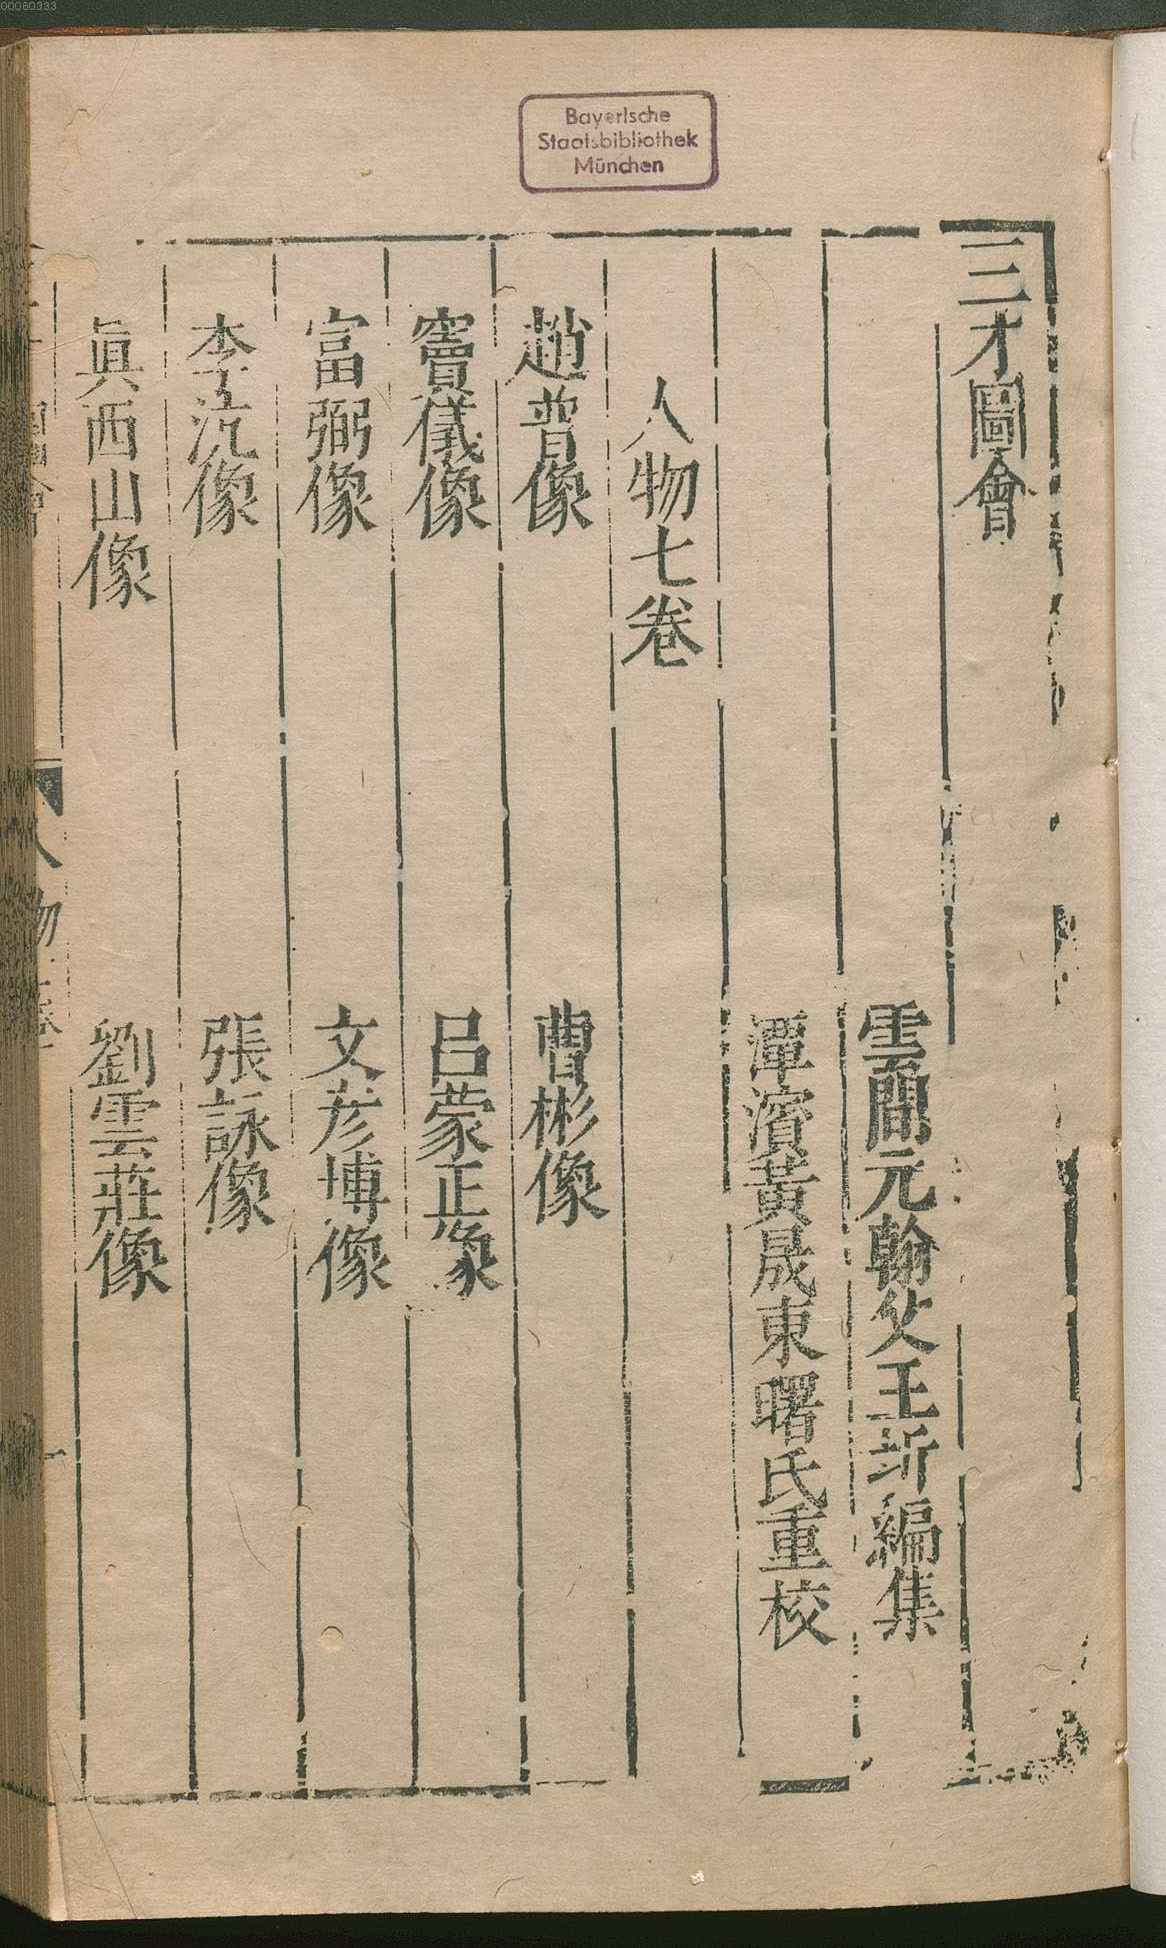 00060333
Bayerische
Staatsbibliothek
München
三才圖會
雲間元翰父王圻編集
潭濱黃晟東曙氏重校
人物七卷
趙普像
曹彬像
竇儀像
呂蒙正像
富弼像
文彦博像
李沆像
張詠像
眞西山像
劉雲莊像